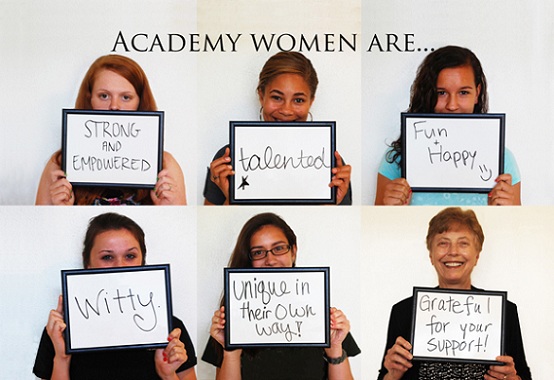 ACADEMY WOMEN ARE...
STRONG
AND
EMPOWERED
talented
Fun
+
Happy
Witty.
Unique in
their Own
way!
Grateful
for your
support!